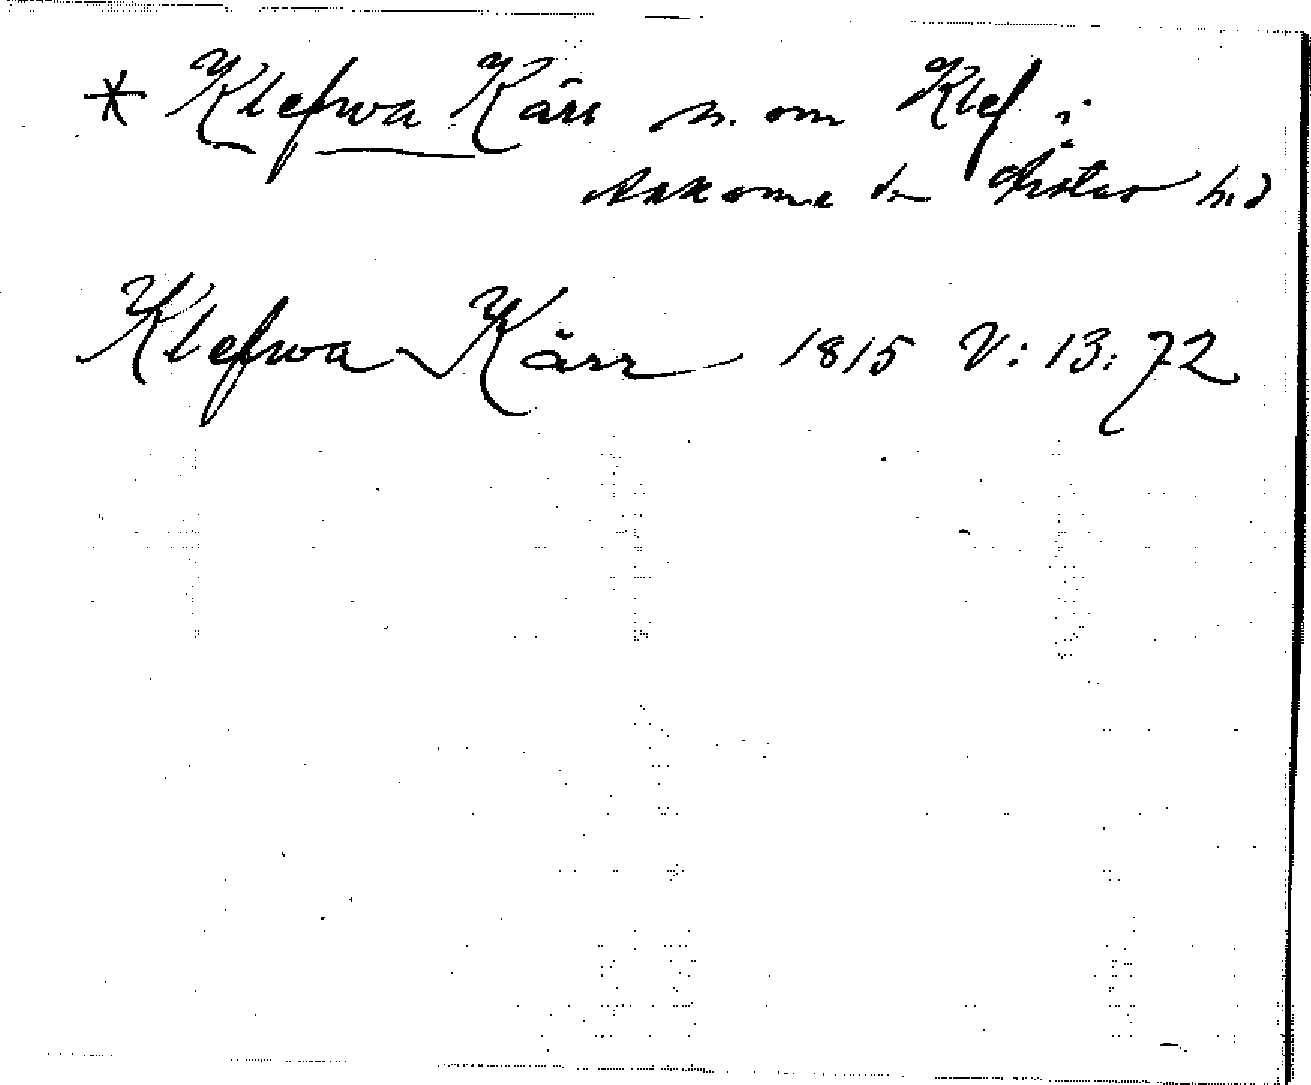 * Klefwa Kärr n. om Klef i
Askome sn Årstad hd
Klefwa Kärr 1815 V: 13: 72